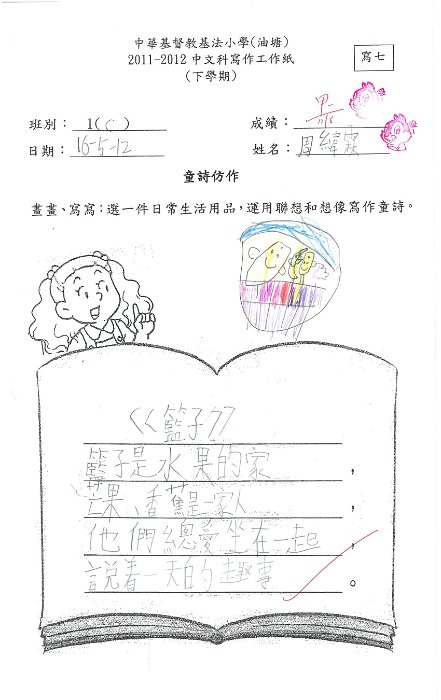 中華基督教基法小學(油塘)
2011-2012中文科寫作工作紙
(下學期)
寫七
班別: 1(C)
成績:
日期: 16-5-12
姓名: 周緯霖
童詩仿作
畫畫、寫寫:選一件日常生活用品,運用聯想和想像寫作童詩。
<<籃子>>
籃子是水果的家,
芒果、香蕉是一家人,
他們總愛坐在一起,
說着一天的趣事。